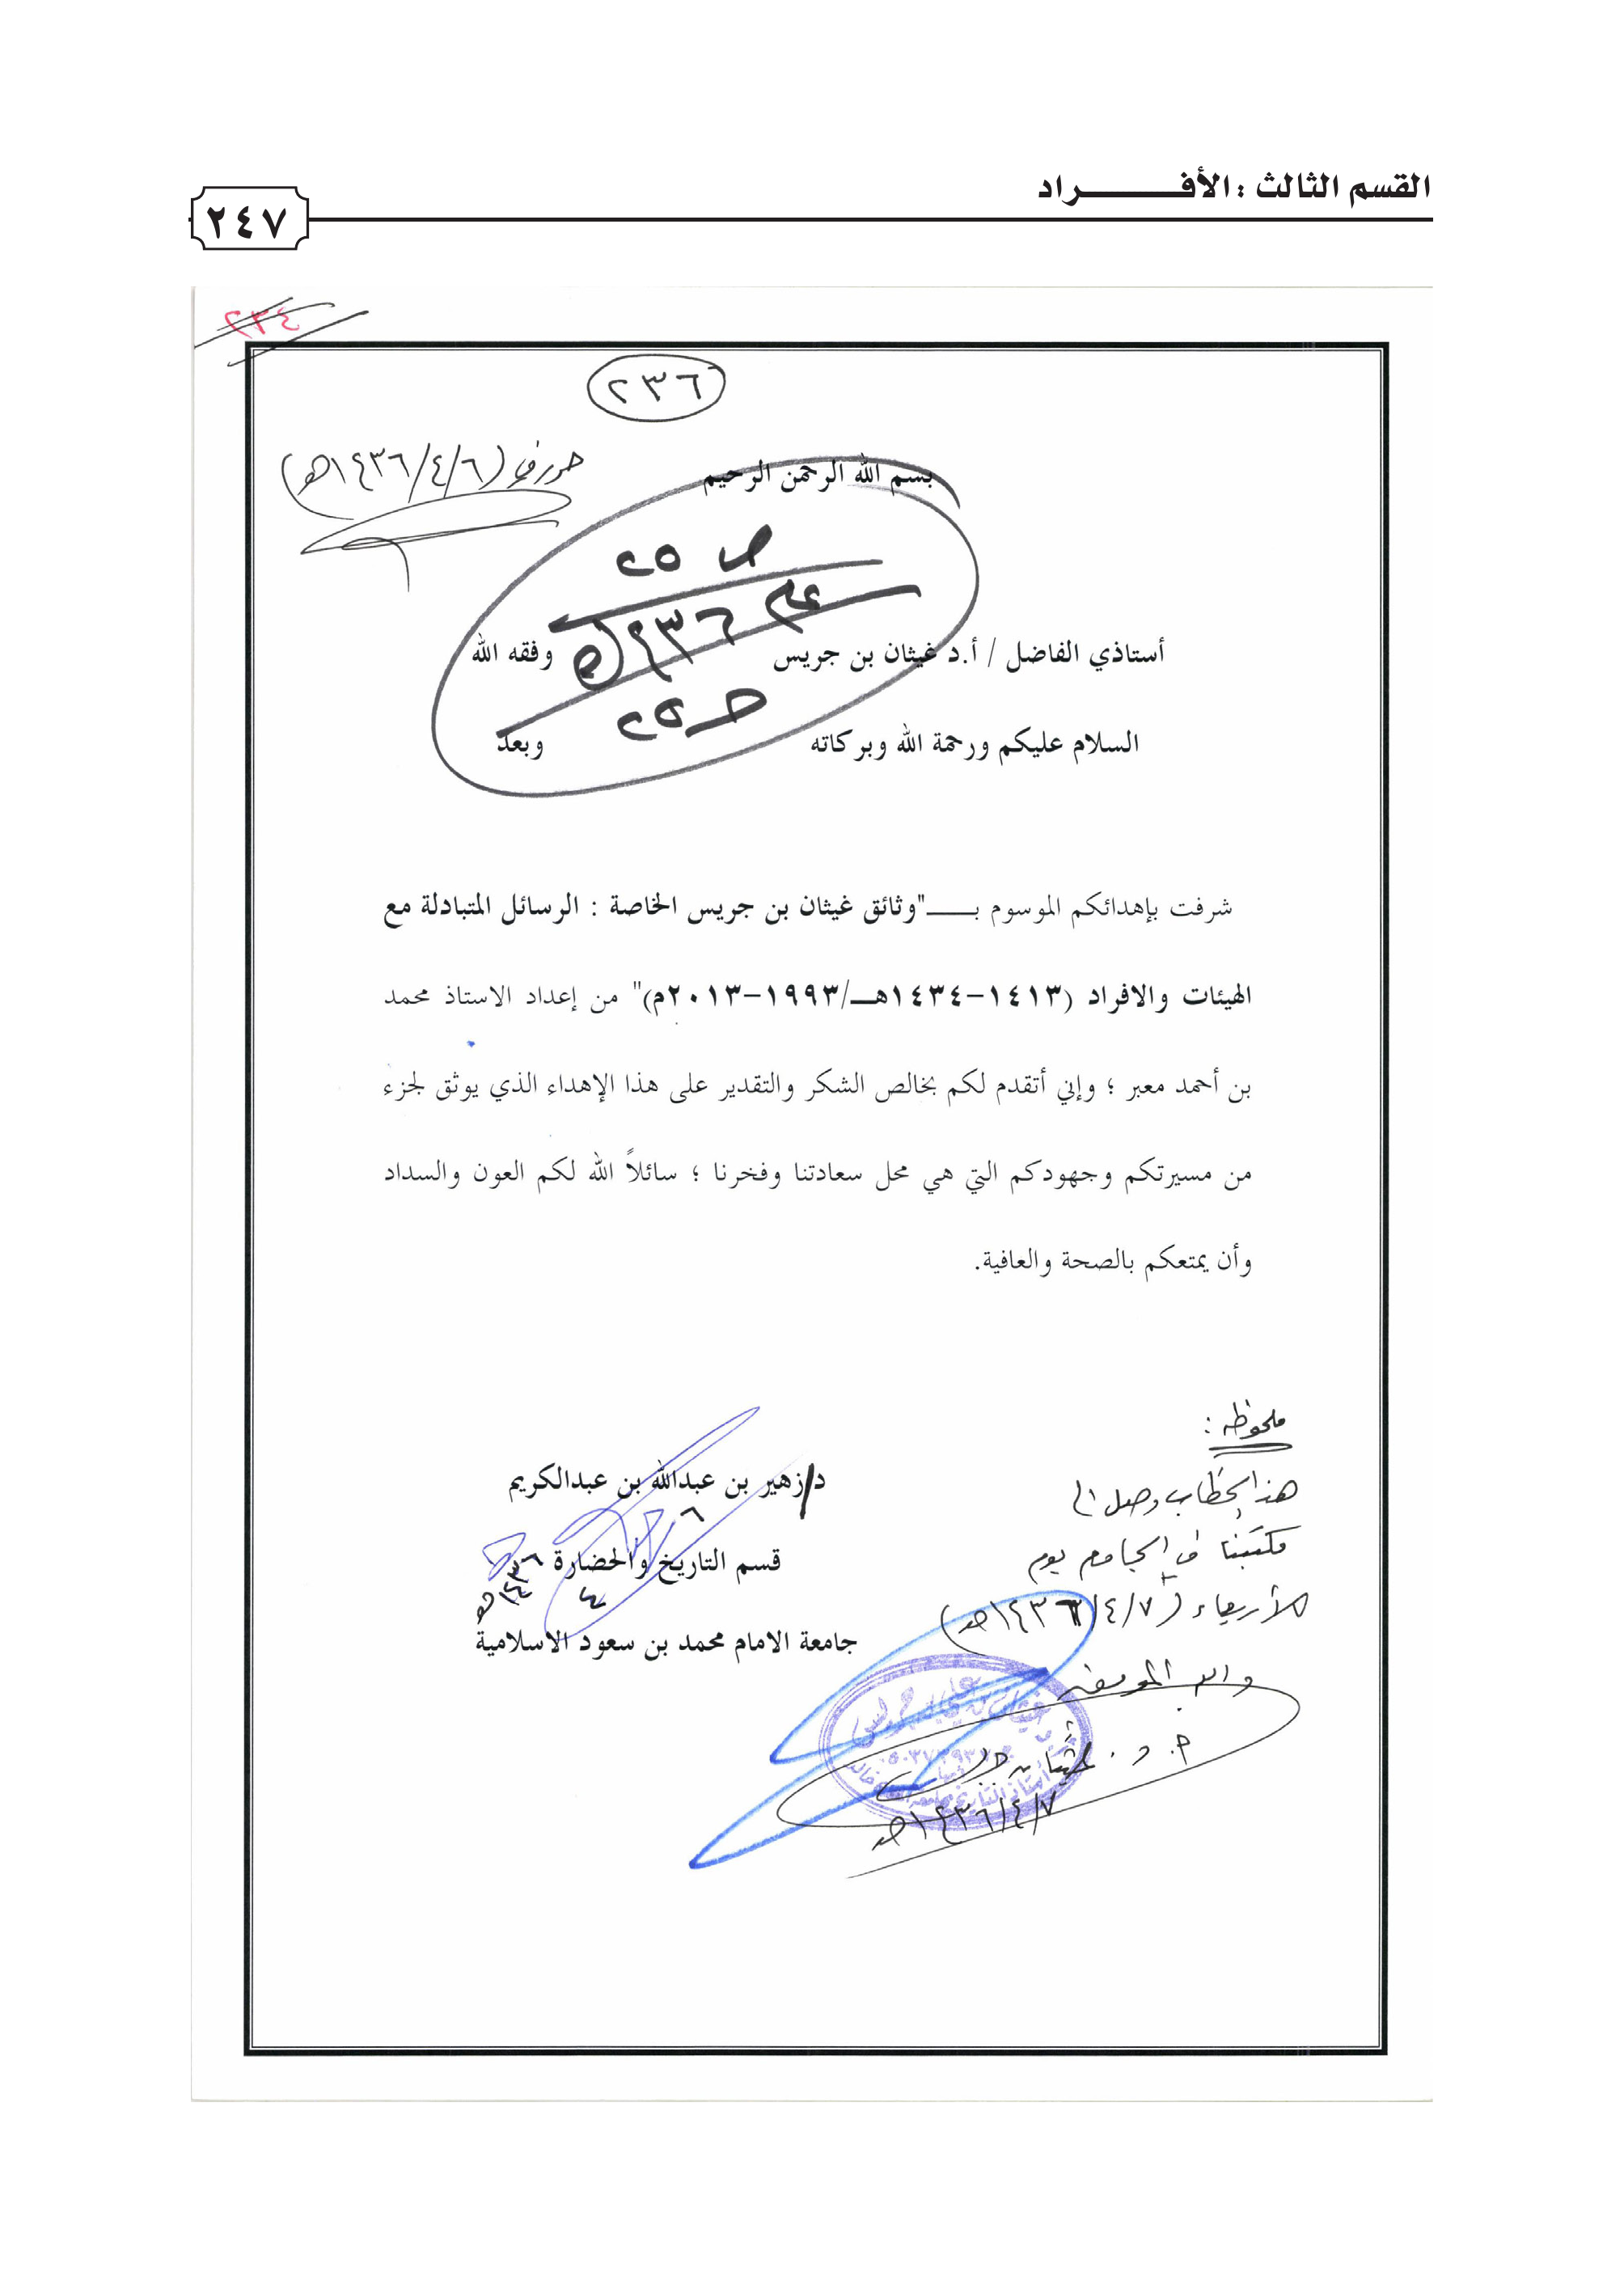 القسم الثالث : الأفـــــراد
٢٤٧
٢٣٤
٢٣٦
حرر في (١٤٣٦/٤/٦هـ)
بسم الله الرحمن الرحيم
ص ٢٥
٢٥
أستاذي الفاضل / أ.د غيثان بن جريس وفقه الله
السلام عليكم ورحمة الله وبركاته وبعد
شرفت بإهدائكم الموسوم بـــ"وثائق غيثان بن جريس الخاصة : الرسائل المتبادلة مع
الهيئات والافراد (١٤١٣-١٤٣٤هـــ/١٩٩٣-٢٠١٣م)" من إعداد الاستاذ محمد
بن أحمد معبر ؛ وإني أتقدم لكم بخالص الشكر والتقدير على هذا الإهداء الذي يوثق لجزء
من مسيرتكم وجهودكم التي هي محل سعادتنا وفخرنا ؛ سائلاً الله لكم العون والسداد
وأن يمتعكم بالصحة والعافية.
د/زهير بن عبدالله بن عبدالكريم
٦
قسم التاريخ والحضارة
٤ ١٤٣٦هـ
جامعة الامام محمد بن سعود الاسلامية
ملحوظه :
هذا الخطاب وصل الى
مكتبنا في الجامعه يوم
الأربعاء (١٤٣٦/٤/٧هـ)
والله الموفق
أ. د. غيثان بن جريس
١٤٣٦/٤/٧هـ